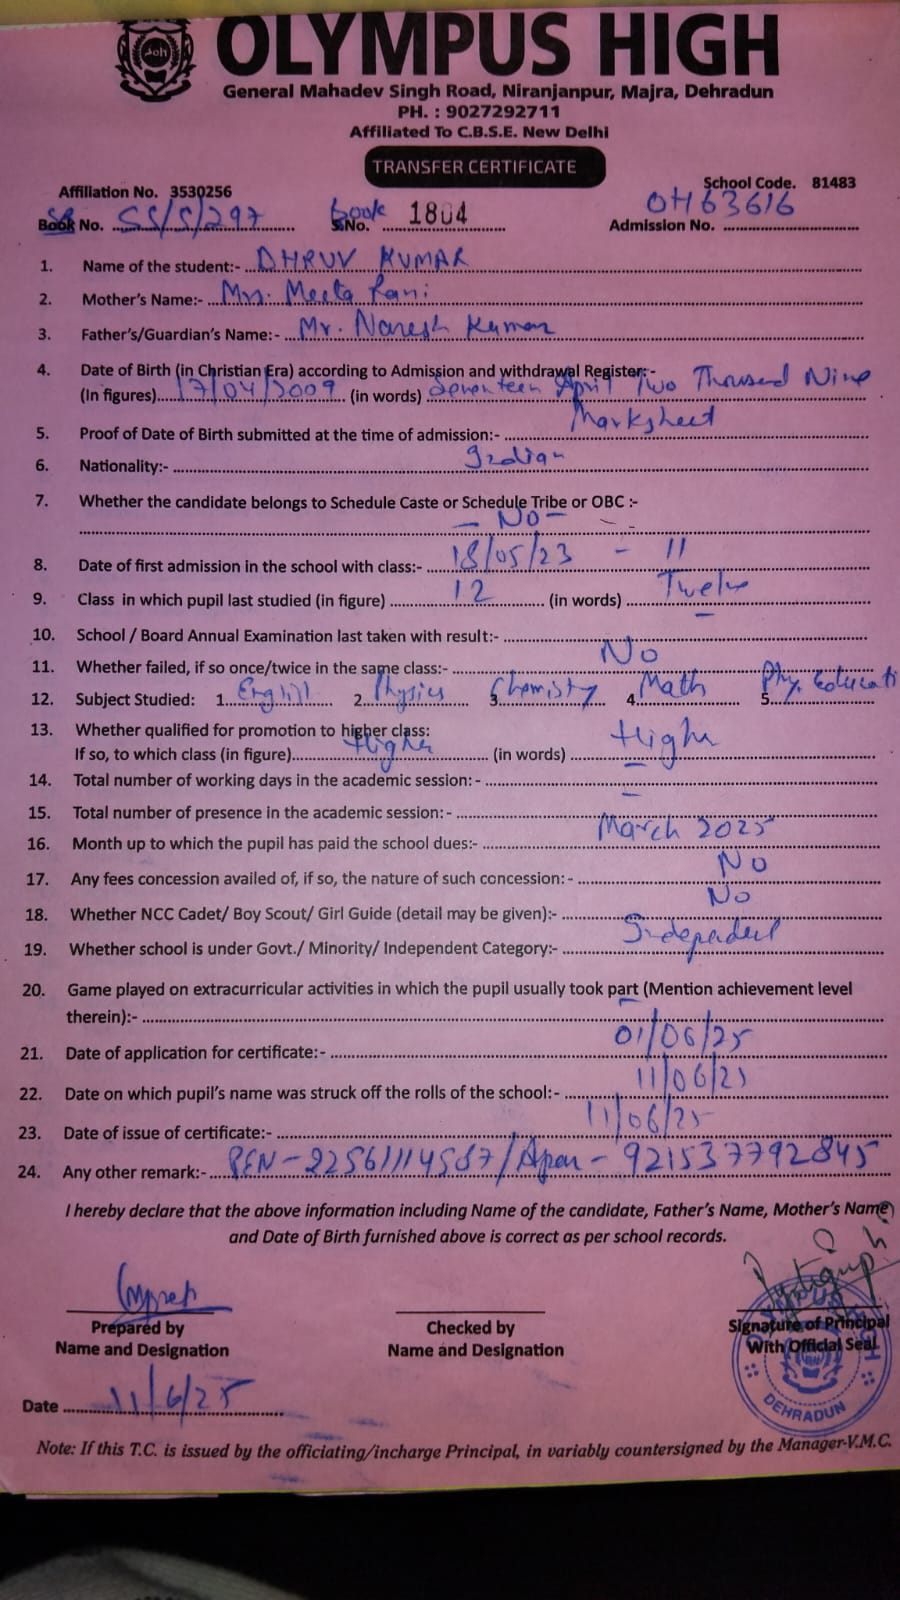 OLYMPUS HIGH
General Mahadev Singh Road, Niranjanpur, Majra, Dehradun
PH. : 9027292711
Affiliated To C.B.S.E. New Delhi
TRANSFER CERTIFICATE
Affiliation No. 3530256 School Code. 81483
Book No. SS/S/297 book No. 1804 Admission No. OH63616
1. Name of the student:- DHRUV KUMAR
2. Mother's Name:- Mrs. Meeta Rani
3. Father's/Guardian's Name:- Mr. Naresh Kumar
4. Date of Birth (in Christian Era) according to Admission and withdrawal Register:-
(In figures) 17/04/2009 (in words) Seventeen April Two Thousand Nine
5. Proof of Date of Birth submitted at the time of admission:- Marksheet
6. Nationality:- Indian
7. Whether the candidate belongs to Schedule Caste or Schedule Tribe or OBC :-
- No -
8. Date of first admission in the school with class:- 18/05/23 - 11
9. Class in which pupil last studied (in figure) 12 (in words) Twelve
10. School / Board Annual Examination last taken with result:- -
11. Whether failed, if so once/twice in the same class:- No
12. Subject Studied: 1. English 2. Physics 3. Chemistry 4. Math 5. Phy. Educati
13. Whether qualified for promotion to higher class:
If so, to which class (in figure) Higher (in words) Higher
14. Total number of working days in the academic session: - -
15. Total number of presence in the academic session:- -
16. Month up to which the pupil has paid the school dues:- March 2025
17. Any fees concession availed of, if so, the nature of such concession: - No
18. Whether NCC Cadet/ Boy Scout/ Girl Guide (detail may be given):- No
19. Whether school is under Govt./ Minority/ Independent Category:- Independent
20. Game played on extracurricular activities in which the pupil usually took part (Mention achievement level
therein):- -
21. Date of application for certificate:- 01/06/25
22. Date on which pupil's name was struck off the rolls of the school:- 11/06/25
23. Date of issue of certificate:- 11/06/25
24. Any other remark:- PEN - 22561114587/Apar - 921537792845
I hereby declare that the above information including Name of the candidate, Father's Name, Mother's Name)
and Date of Birth furnished above is correct as per school records.
Prepared by Checked by Signature of Principal
Name and Designation Name and Designation With Official Seal
DEHRADUN
Date 11/6/25
Note: If this T.C. is issued by the officiating/incharge Principal, in variably countersigned by the Manager-V.M.C.